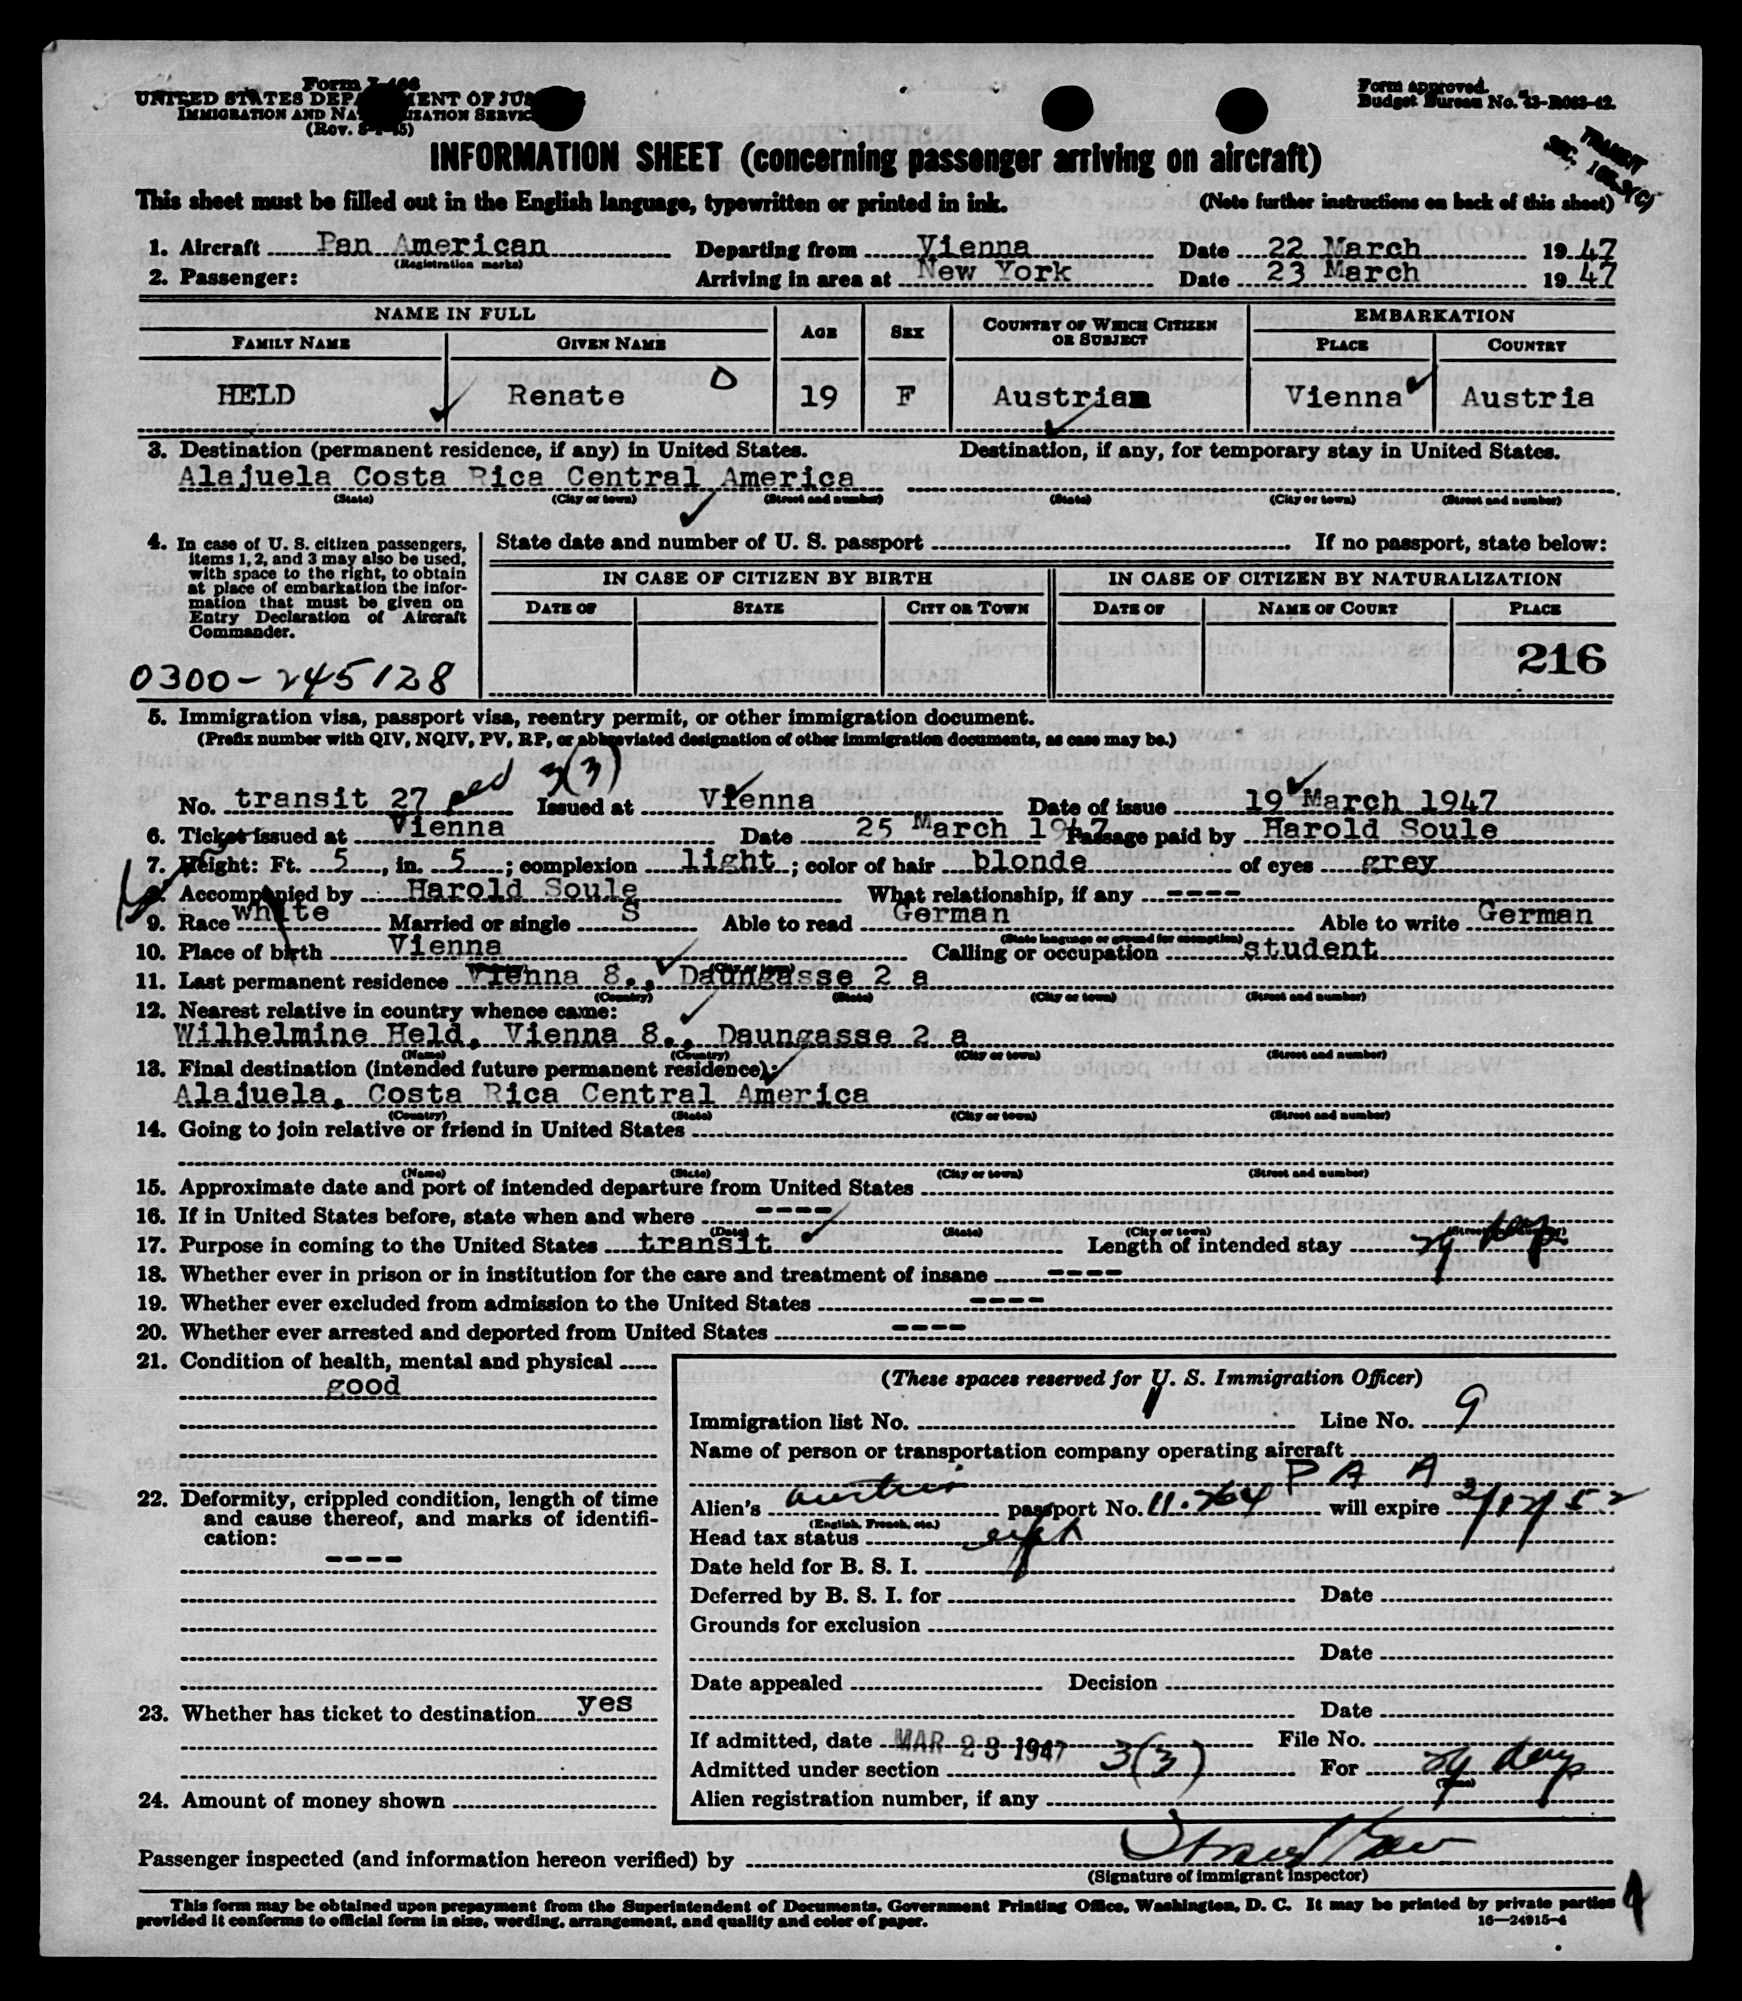 Form I-466
UNITED STATES DEPARTMENT OF JUSTICE
IMMIGRATION AND NATURALIZATION SERVICE
Form approved.
Budget Bureau No. 43-R063-42.
TRANSIT
INFORMATION SHEET (concerning passenger arriving on aircraft)
This sheet must be filled out in the English language, typewritten or printed in ink. (Note further instructions on back of this sheet)
1. Aircraft Pan American Departing from Vienna Date 22 March 1947
(Registration marks)
2. Passenger: Arriving in area at New York Date 23 March 1947
NAME IN FULL AGE SEX COUNTRY OF WHICH CITIZEN OR SUBJECT EMBARKATION
FAMILY NAME GIVEN NAME PLACE COUNTRY
HELD Renate 0 19 F Austrian Vienna Austria
3. Destination (permanent residence, if any) in United States. Destination, if any, for temporary stay in United States.
Alajuela Costa Rica Central America
(State) (City or town) (Street and number) (State) (City or town) (Street and number)
4. In case of U. S. citizen passengers,
items 1, 2, and 3 may also be used,
with space to the right, to obtain
at place of embarkation the infor-
mation that must be given on
Entry Declaration of Aircraft
Commander.
State date and number of U. S. passport If no passport, state below:
IN CASE OF CITIZEN BY BIRTH IN CASE OF CITIZEN BY NATURALIZATION
DATE OF STATE CITY OR TOWN DATE OF NAME OF COURT PLACE
216
0300-245128
5. Immigration visa, passport visa, reentry permit, or other immigration document.
(Prefix number with QIV, NQIV, PV, RP, or abbreviated designation of other immigration documents, as case may be.)
3(3)
No. transit 27 Issued at Vienna Date of issue 19 March 1947
6. Ticket issued at Vienna Date 25 March 1947 Passage paid by Harold Soule
7. Height: Ft. 5, in. 5; complexion light; color of hair blonde of eyes grey
8. Accompanied by Harold Soule What relationship, if any ----
9. Race white Married or single S Able to read German Able to write German
(State language or ground for exemption)
10. Place of birth Vienna Calling or occupation student
(City or town)
11. Last permanent residence Vienna 8., Daungasse 2 a
(Country) (State) (City or town) (Street and number)
12. Nearest relative in country whence came:
Wilhelmine Held, Vienna 8., Daungasse 2 a
(Name) (Country) (City or town) (Street and number)
13. Final destination (intended future permanent residence):
Alajuela, Costa Rica Central America
(Country) (State) (City or town) (Street and number)
14. Going to join relative or friend in United States
(Name) (State) (City or town) (Street and number)
15. Approximate date and port of intended departure from United States
16. If in United States before, state when and where ----
(Date) (State) (City or town) (Street and number)
17. Purpose in coming to the United States transit Length of intended stay 29 days
18. Whether ever in prison or in institution for the care and treatment of insane ----
19. Whether ever excluded from admission to the United States ----
20. Whether ever arrested and deported from United States ----
21. Condition of health, mental and physical
good
22. Deformity, crippled condition, length of time
and cause thereof, and marks of identifi-
cation:
----
23. Whether has ticket to destination yes
24. Amount of money shown
(These spaces reserved for U. S. Immigration Officer)
Immigration list No. 1 Line No. 9
Name of person or transportation company operating aircraft
P A A
Alien's passport No. 11.764 will expire 2/12/52
(English, French, etc.)
Head tax status
Date held for B. S. I.
Deferred by B. S. I. for Date
Grounds for exclusion
Date
Date appealed Decision
Date
If admitted, date MAR 23 1947 File No.
Admitted under section 3(3) For 29 days
(Time)
Alien registration number, if any
Passenger inspected (and information hereon verified) by
(Signature of immigrant inspector)
This form may be obtained upon prepayment from the Superintendent of Documents, Government Printing Office, Washington, D. C. It may be printed by private parties
provided it conforms to official form in size, wording, arrangement, and quality and color of paper. 16—24915-4